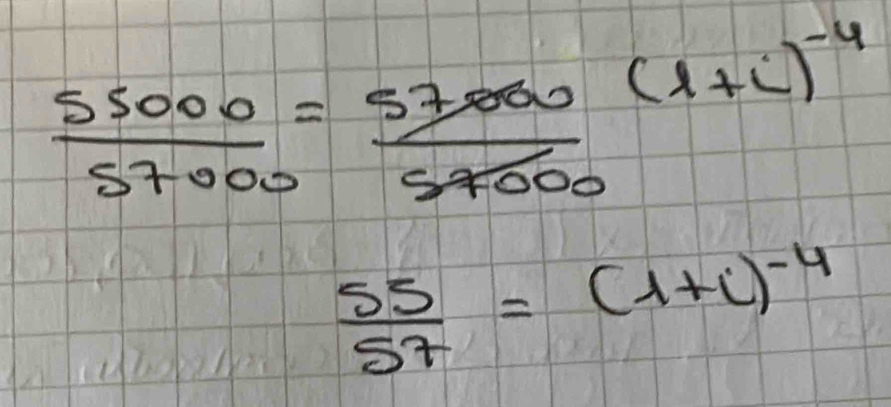 55000/57000 = 57000/57000 (1+i)^-4
55/57 = (1+i)^-4